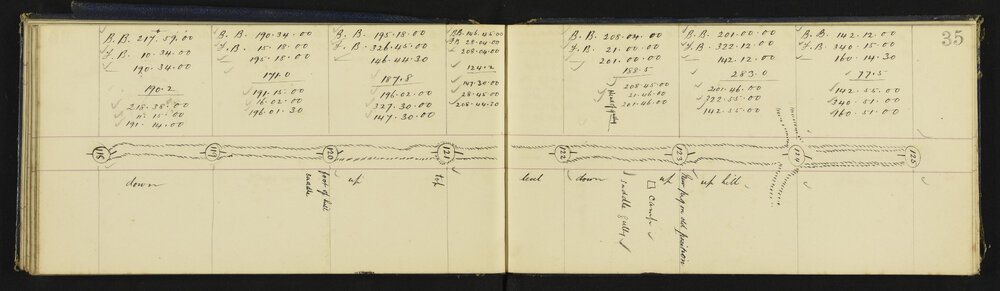 35
B.B. 217.59.00
F.B. 10.34.00
190.34.00
190.2
218.38.00
15.15.00
191.14.00
B.B. 190.34.00
F.B. 15.18.00
195.18.00
171.0
191.15.00
16.02.00
196.01.30
B.B. 195.18.00
F.B. 326.45.00
146.44.30
187.8
196.02.00
327.30.00
147.30.00
B.B. 146.45.00
F.B. 28.04.00
208.04.00
124.2
147.30.00
28.45.00
208.44.30
B.B. 208.04.00
F.B. 21.00.00
201.00.00
188.5
208.45.00
21.46.00
201.46.00
B.B. 201.00.00
F.B. 322.12.00
142.12.00
283.0
201.46.00
322.55.00
142.55.00
B.B. 142.12.00
F.B. 340.15.00
160.14.30
77.5
142.55.00
340.51.00
160.51.00
118
119
120
121
122
123
124
125
down
foot of hill
saddle
up
top
level
down
saddle gully
camp
up
New peg on old position
up hill